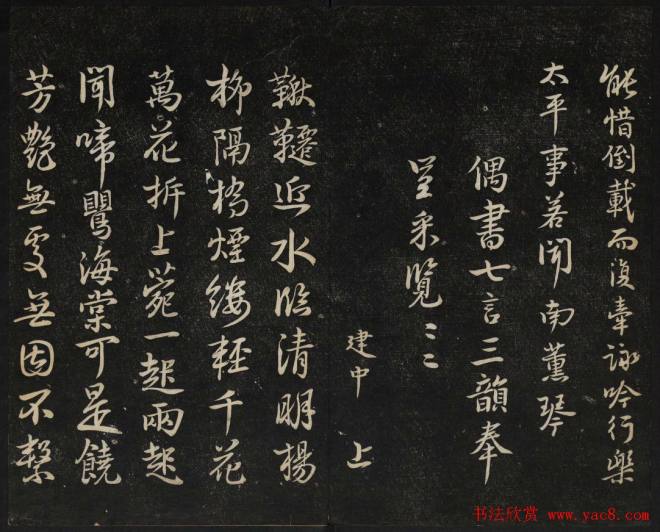 能惜倒載而復牽詠吟行樂
太平事若聞南薰琴
偶書七言三韻奉
呈采覽
建中 上
鞦韆近水臨清明楊
柳隔橋煙縷輕千花
萬花折上苑一起兩起
聞啼鸎海棠可是饒
芳艷無
無因不繫
书法欣赏 www.yac8.com